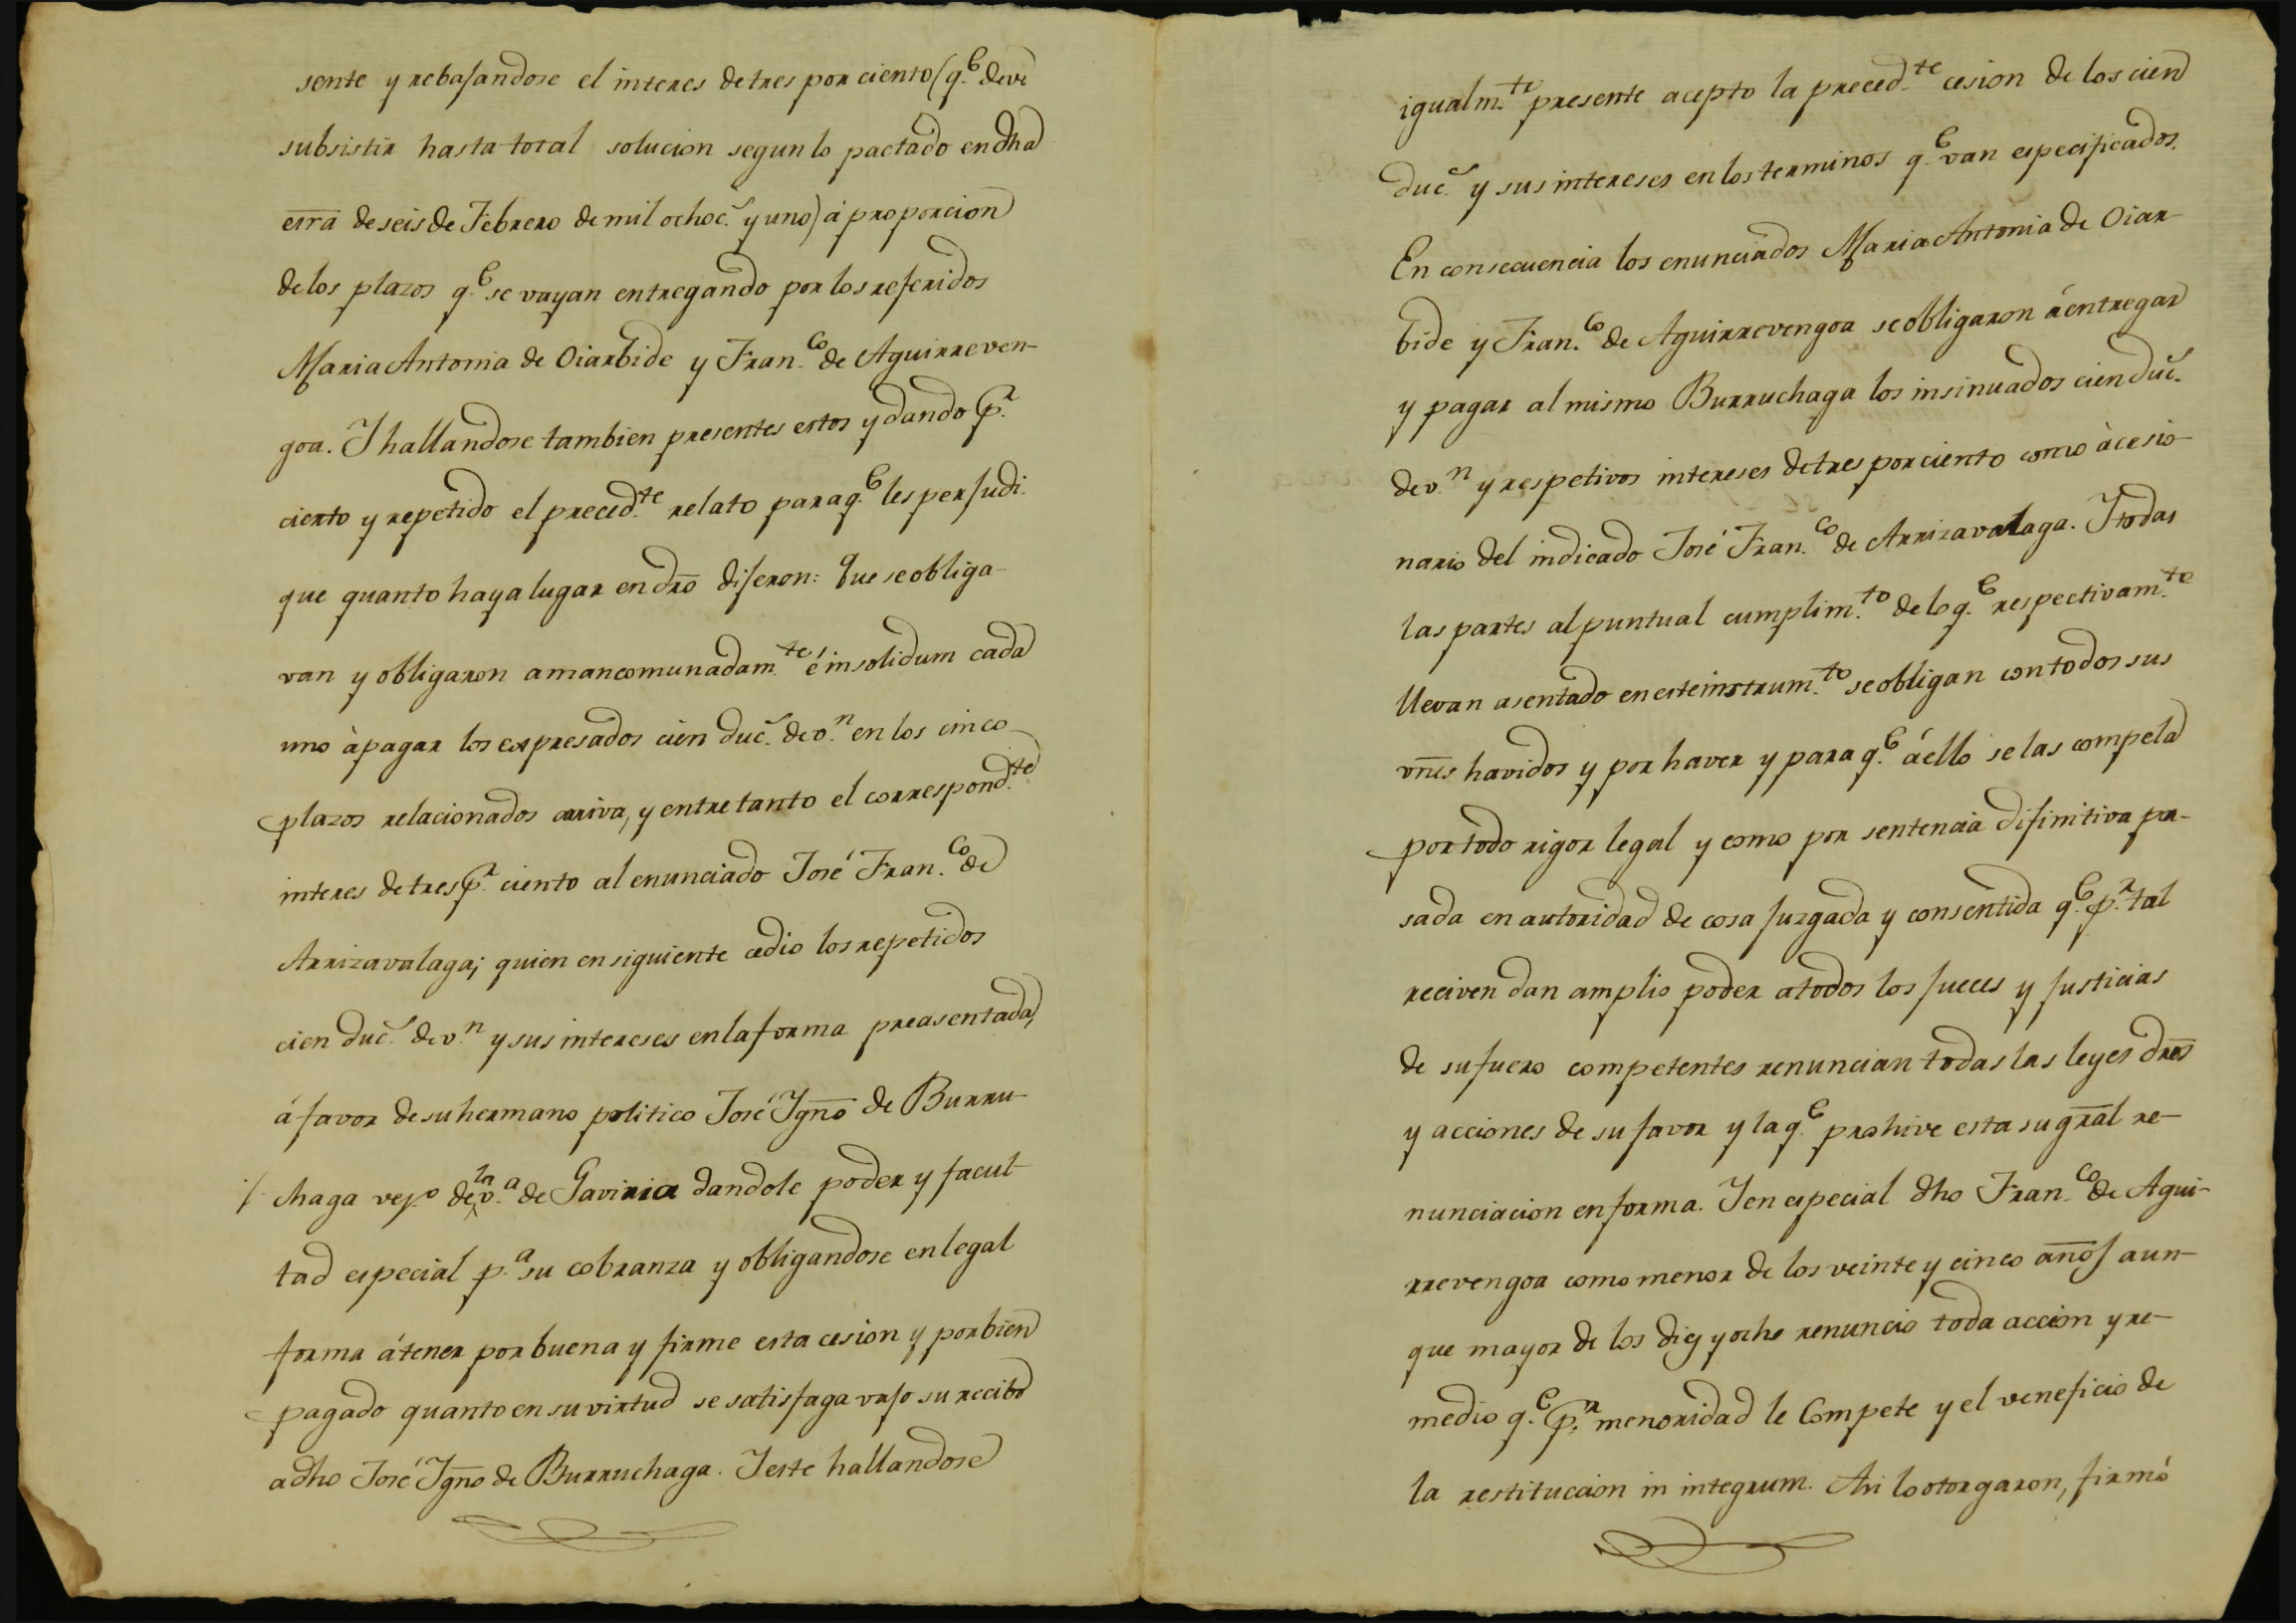 sente y rebajandose el interes de tres por ciento (q.e deve
subsistir hasta total solucion segun lo pactado en dha
esrã de seis de Febrero de mil ochoc.s y uno) á proporcion
de los plazos q.e se vayan entregando por los referidos
Maria Antonia de Oiarbide y Fran.co de Aguirreven-
goa. Y hallandose tambien presentes estos y dando p.r
cierto y repetido el preced.te relato para q.e les perjudi-
que quanto haya lugar en dro dijeron: Que se obliga-
van y obligaron amancomunadam.te é insolidum cada
uno à pagar los expresados cien duc.s de v.n en los cinco
plazos relacionados arriva, y entre tanto el correspond.te
interes de tres p.r ciento al enunciado José Fran.co de
Arrizavalaga; quien en siguiente cedio los repetidos
cien duc.s de v.n y sus intereses en la forma preasentada,
á favor de su hermano politico José Ygno de Burru-
/. chaga vej.o de la v.a de Gaviria dandole poder y facul-
tad especial p.a su cobranza y obligandose en legal
forma á tener por buena y firme esta cesion y por bien
pagado quanto en su virtud se satisfaga vajo su recibo
a dho José Ygno de Burruchaga. Y este hallandose
igualm.te presente acepto la preced.te cesion de los cien
duc.s y sus intereses en los terminos q.e van especificados.
En consecuencia los enunciados Maria Antonia de Oiar-
bide y Fran.co de Aguirrevengoa se obligaron á entregar
y pagar al mismo Burruchaga los insinuados cien duc.s
de v.n y respetivos intereses de tres por ciento como à cesio-
nario del indicado José Fran.co de Arrizavalaga. Y todas
las partes al puntual cumplim.to de lo q.e respectivam.te
llevan asentado en este instrum.to se obligan con todos sus
vnẽs havidos y por haver y para q.e á ello se las compela
por todo rigor legal y como por sentencia difinitiva pa-
sada en autoridad de cosa juzgada y consentida q.e p.r tal
reciven dan amplio poder a todos los jueces y justicias
de su fuero competentes renuncian todas las leyes dros
y acciones de su favor y la q.e prohive esta su gral re-
nunciacion en forma. Y en especial dho Fran.co de Agui-
rrevengoa como menor de los veinte y cinco años aun-
que mayor de los diez y ocho renuncio toda accion y re-
medio q.e p.r menoridad le Compete y el veneficio de
la restitucion in integrum. Asi lo otorgaron, firmó